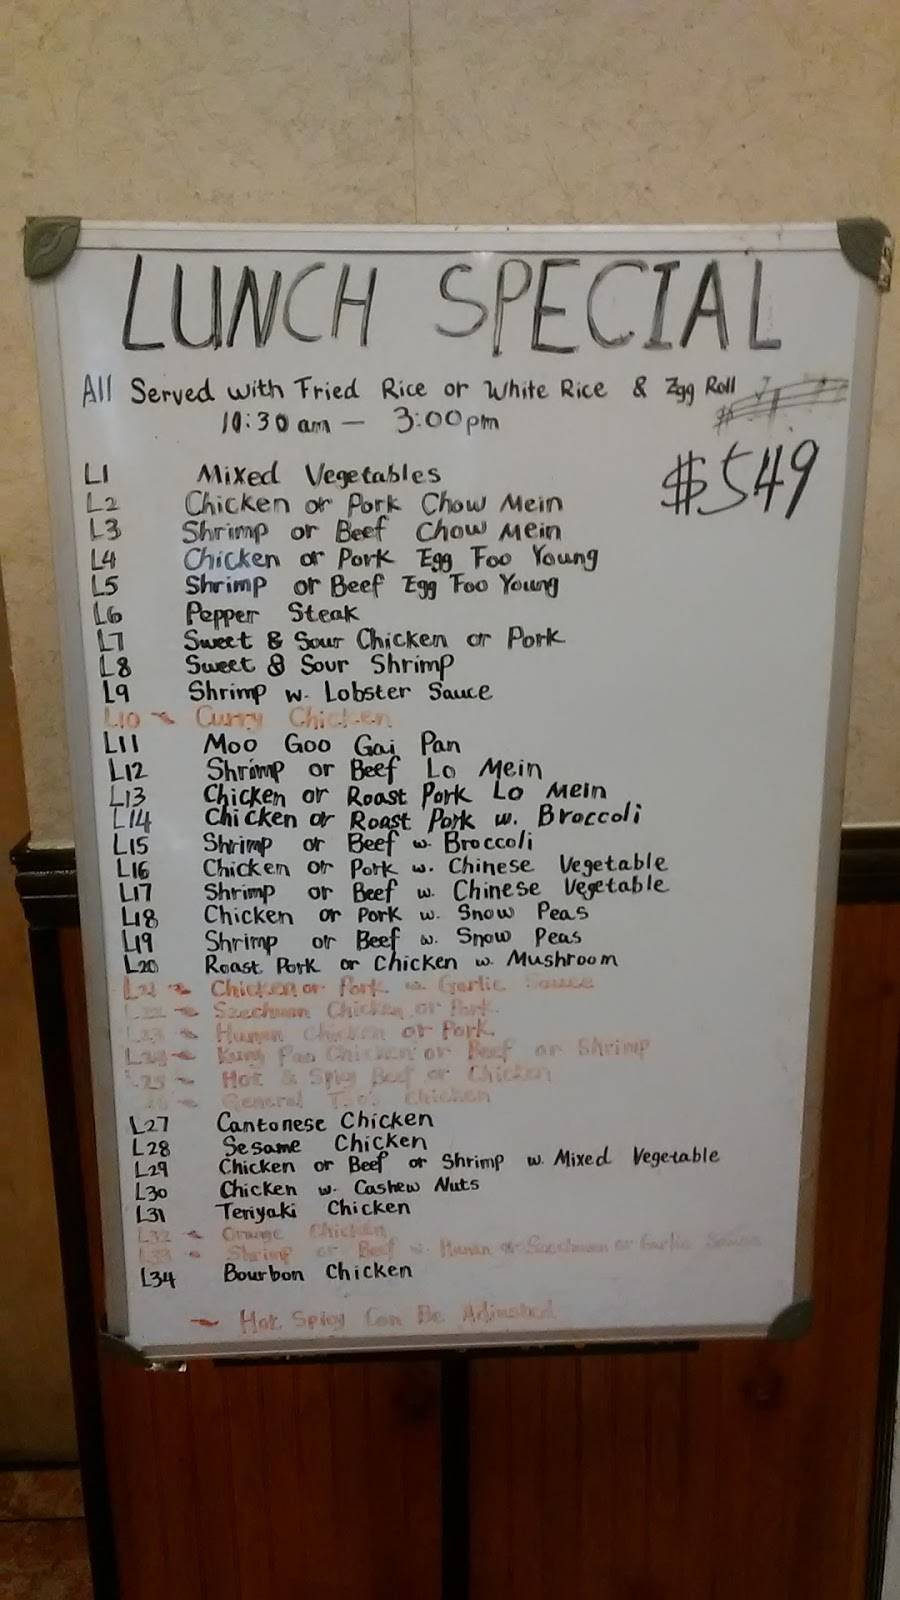 LUNCH SPECIAL
All Served with Fried Rice or White Rice & Egg Roll
10:30 am — 3:00pm
$549
L1 Mixed Vegetables
L2 Chicken or Pork Chow Mein
L3 Shrimp or Beef Chow Mein
L4 Chicken or Pork Egg Foo Young
L5 Shrimp or Beef Egg Foo Young
L6 Pepper Steak
L7 Sweet & Sour Chicken or Pork
L8 Sweet & Sour Shrimp
L9 Shrimp w. Lobster Sauce
L10 Curry Chicken
L11 Moo Goo Gai Pan
L12 Shrimp or Beef Lo Mein
L13 Chicken or Roast Pork Lo Mein
L14 Chicken or Roast Pork w. Broccoli
L15 Shrimp or Beef w. Broccoli
L16 Chicken or Pork w. Chinese Vegetable
L17 Shrimp or Beef w. Chinese Vegetable
L18 Chicken or Pork w. Snow Peas
L19 Shrimp or Beef w. Snow Peas
L20 Roast Pork or Chicken w. Mushroom
L21 Chicken or Pork w. Garlic Sauce
L22 Szechuan Chicken or Pork.
L23 Hunan Chicken or Pork.
L24 Kung Pao Chicken or Beef or Shrimp
L25 Hot & Spicy Beef or Chicken
26 General Tso's Chicken
L27 Cantonese Chicken
L28 Sesame Chicken
L29 Chicken or Beef or Shrimp w. Mixed Vegetable
L30 Chicken w. Cashew Nuts
L31 Teriyaki Chicken
L32 Orange Chicken
L33 Shrimp or Beef w. Hunan or Szechuan or Garlic Sauce
L34 Bourbon Chicken
~ Hot Spicy Can Be Adjusted